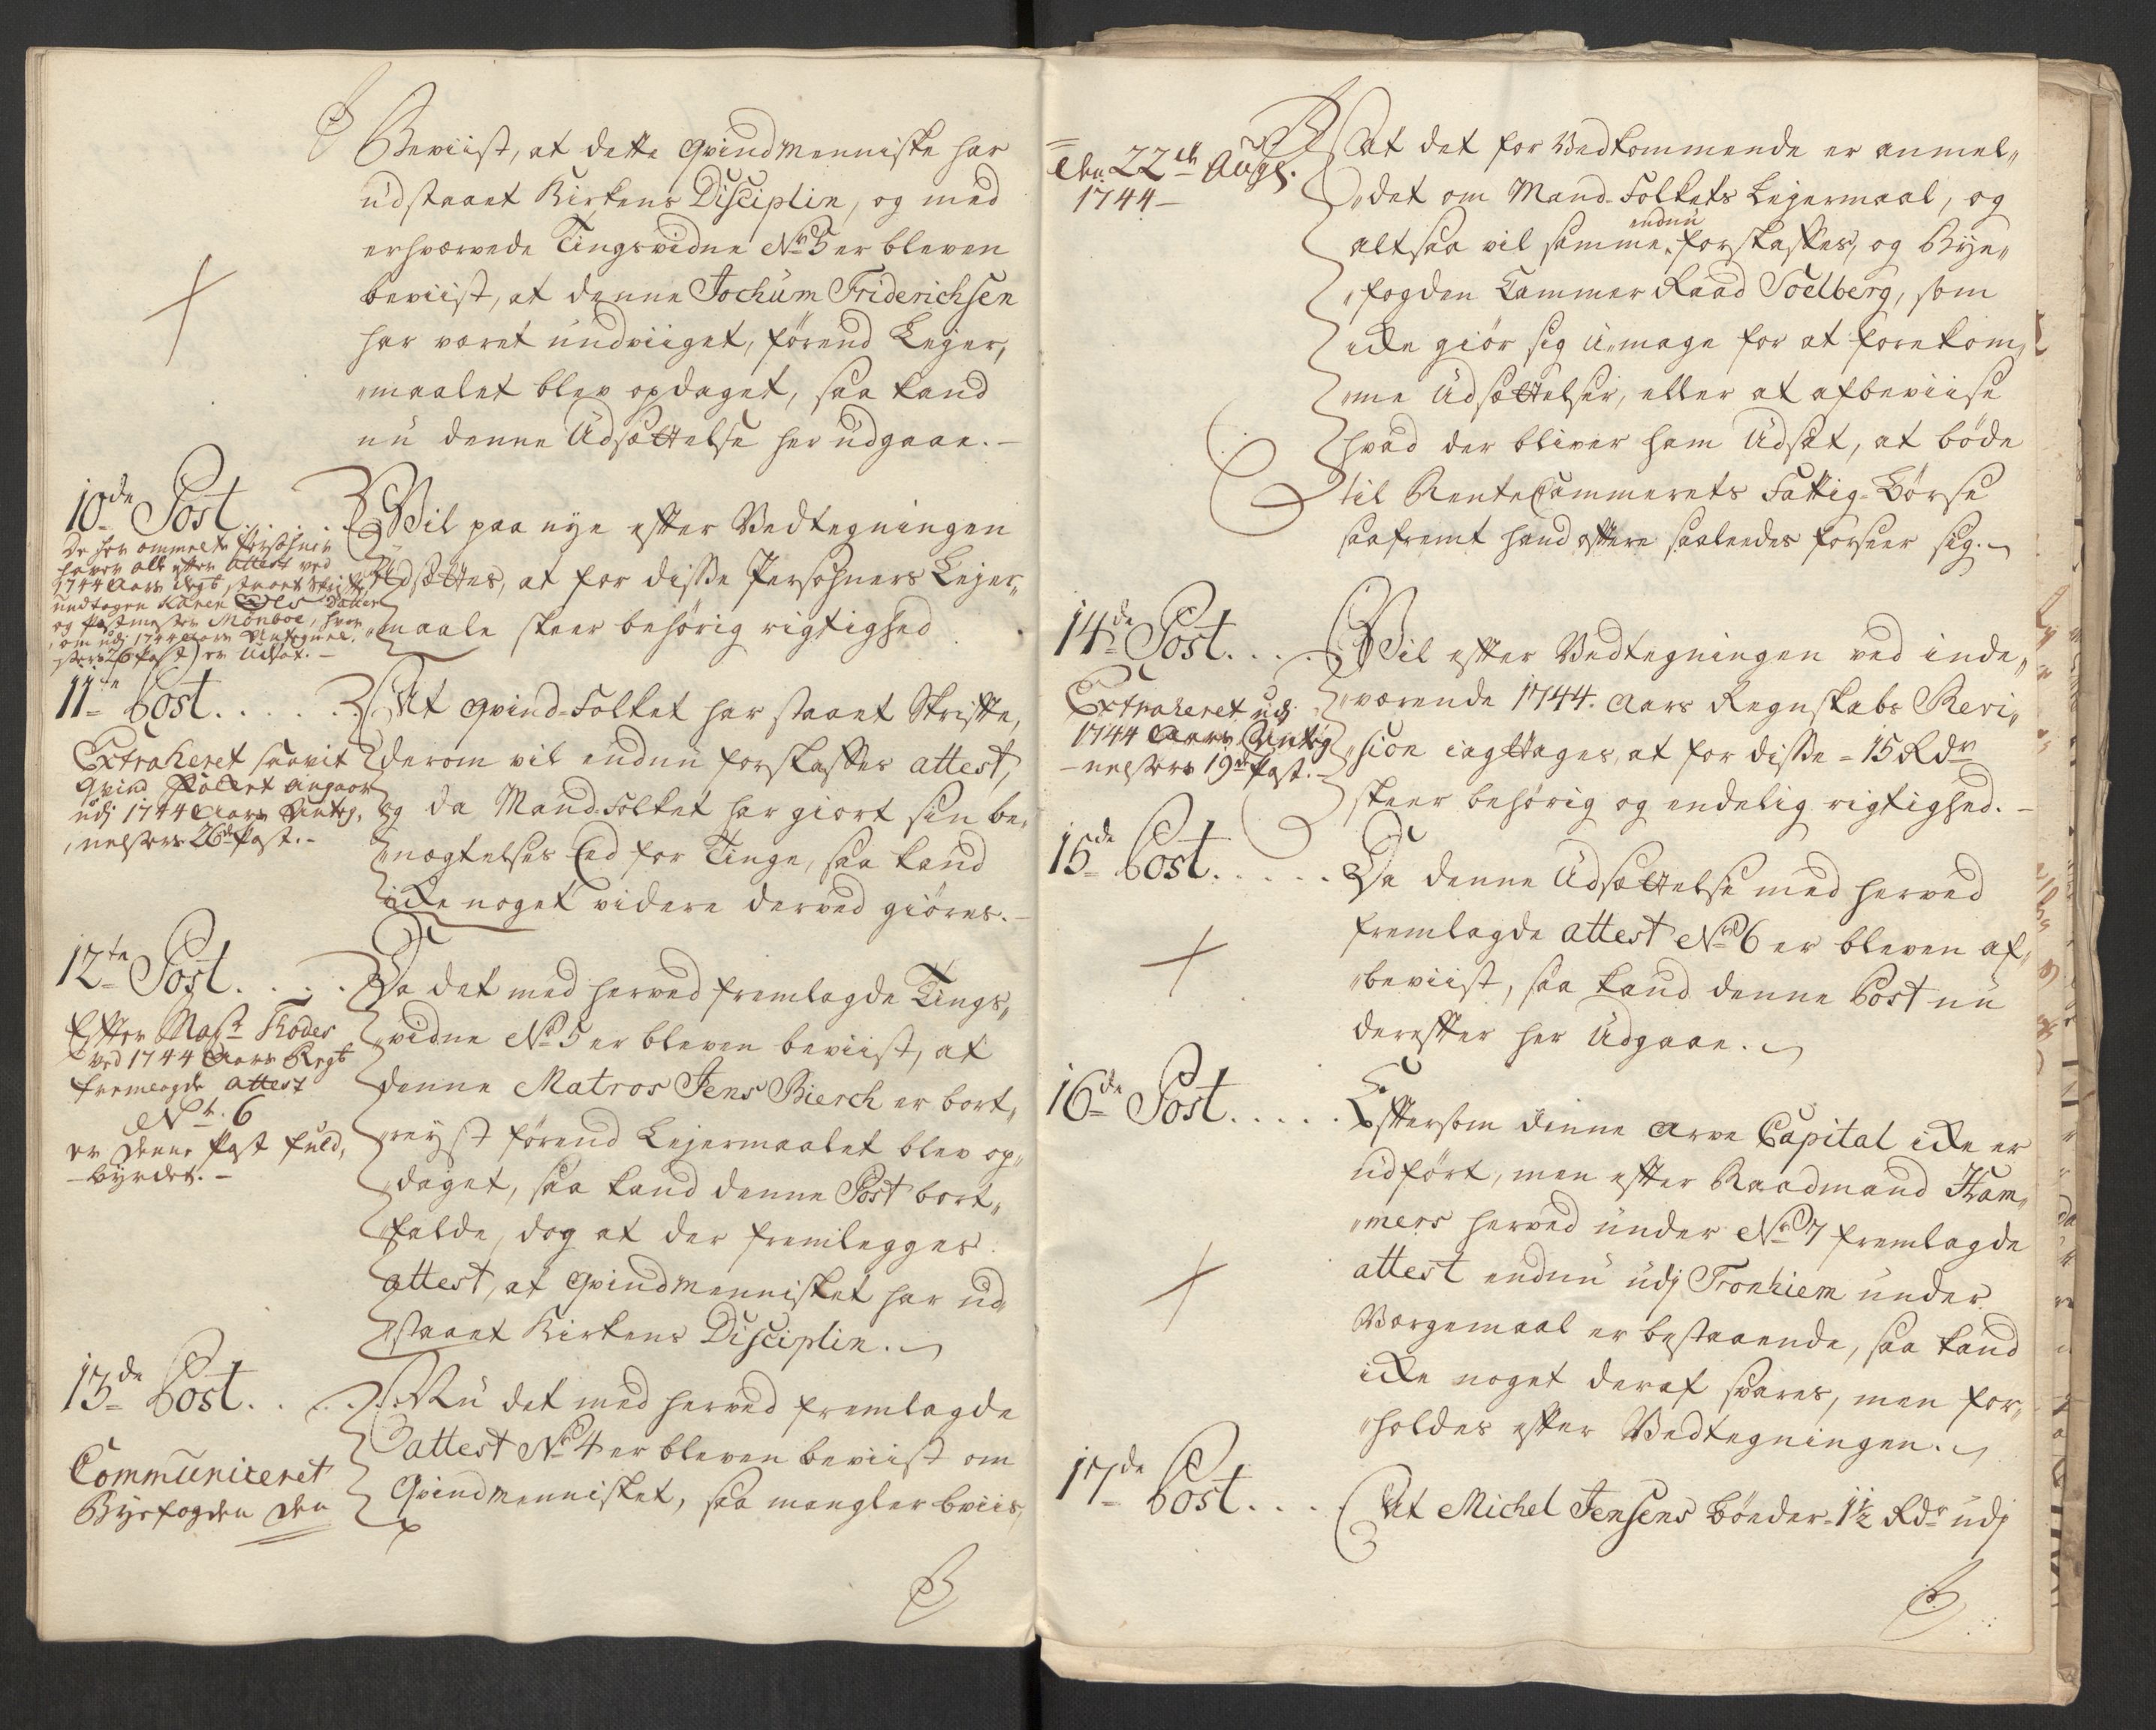 Beviist, at dette qvindmenniske har
udstaaet Kirkens Disciplin, og med
erhværvede Tingsvidne No 5 er bleven
beviist, at denne Jochum Friderichsen
har været undviiget, førend Lejer,
"maalet blev opdaget, saa kand
nu denne Udsættelse her udgaae. –
10de Post . . . .
De her ommelte Persohner
haver alle efter attest ved
1744 Aars Regsk, staaet Skrifte
undtagen Karen Ols Datter
og Postmester Monboe, hvor
"om udj 1744 Aars Antegnel.
"sers 26 Post) er Udsat. –
Vil paa nye efter Vedtegningen
Udsættes, at for disse Persohners Lejer,,
"maale skeer behørig rigtighed
11te Post . . . . .
Extraheret saavit
Qvind Folket angaar
udj 1744 Aars Anteg,
,nelsers 26de Post. –
At qvind-Folket har staaet Skrifte,
derom vil endnu forskaffes attest,
og da Mand-Folket har giort sin be,
"nægtelses Eed for Tinge, saa kand
icke noget videre derved giøres. –
12te Post . . . .
Efter Mag: Thodes
ved 1744 Aars Regsk
fremlagde attest
No 6
er denne Post fuld,
"byrdet. –
Da det med herved fremlagde Tings,,
"vidne No 5 er bleven beviist, at
denne Matros Jens Bierch er bort,,
"reyst førend Lejermaalet blev op,,
"daget, saa kand denne Post bort,,
"falde, dog at der fremlegges
attest, at qvindmennisket har ud
"staaet Kirkens Disciplin.
13de Post . . .
Communiceret
Byefogden den
Nu det med herved fremlagde
attest No 4 er bleven beviist om
Qvindmennisket, saa mangler beviis,
den 22de Augs.
1744 –
at det for Vedkommende er anmel,,
"det om Mand-Folkets Lejermaal, og
altsaa vil samme endnu forskaffes, og Bye,,
"fogden Cammer Raad Soelberg, som
icke giør sig u,mage for at forekom,
"me Udsættelser, eller at afbeviise
hvad der bliver ham Udsat, at bøde
til RenteCammerets Fattig-Børse
saafremt hand oftere saaleedes forseer sig.
14de Post . . . .
Extraheret udj
1744 Aars Anteg
"nelsers 19de Post. –
Vil efter Vedtegningen ved inde,,
"værende 1744. Aars Regnskabs Revi,,
"sion iagttages, at for disse = 15 Rdr
skeer behørig og endelig rigtighed. –
15de Post . . . . .
Da denne Udsættelse med herved
fremlagde attest No 6 er bleven af,,
"beviist, saa kand denne Post nu
derefter her Udgaae.
16de Post . . . . .
Eftersom denne Arve Capital icke er
udført, men efter Raadmand Ham,,
"mers herved under No 7 fremlagde
attest endnu udj Tronhiem under
Værgemaal er bestaaende, saa kand
icke noget deraf svares, men for,,
"holdes efter Vedtegningen.
17de Post . . . .
At Michel Jensens Bøeder - 1½ Rdr udj